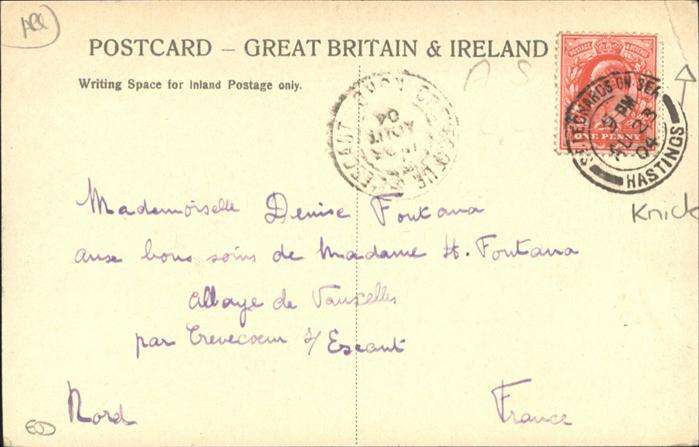 POSTCARD – GREAT BRITAIN & IRELAND
Writing Space for Inland Postage only.
POSTAGE & REVENUE
ONE PENNY
ST LEONARDS-ON-SEA
9 PM
AU 23
04
HASTINGS
CREVECOEUR
AOUT
04
ESCAUT
Knick
Mademoiselle Denise Fontana
aux bons soins de Madame H. Fontana
Abbaye de Vauxelles
par Crevecoeur s/ Escaut
Nord France